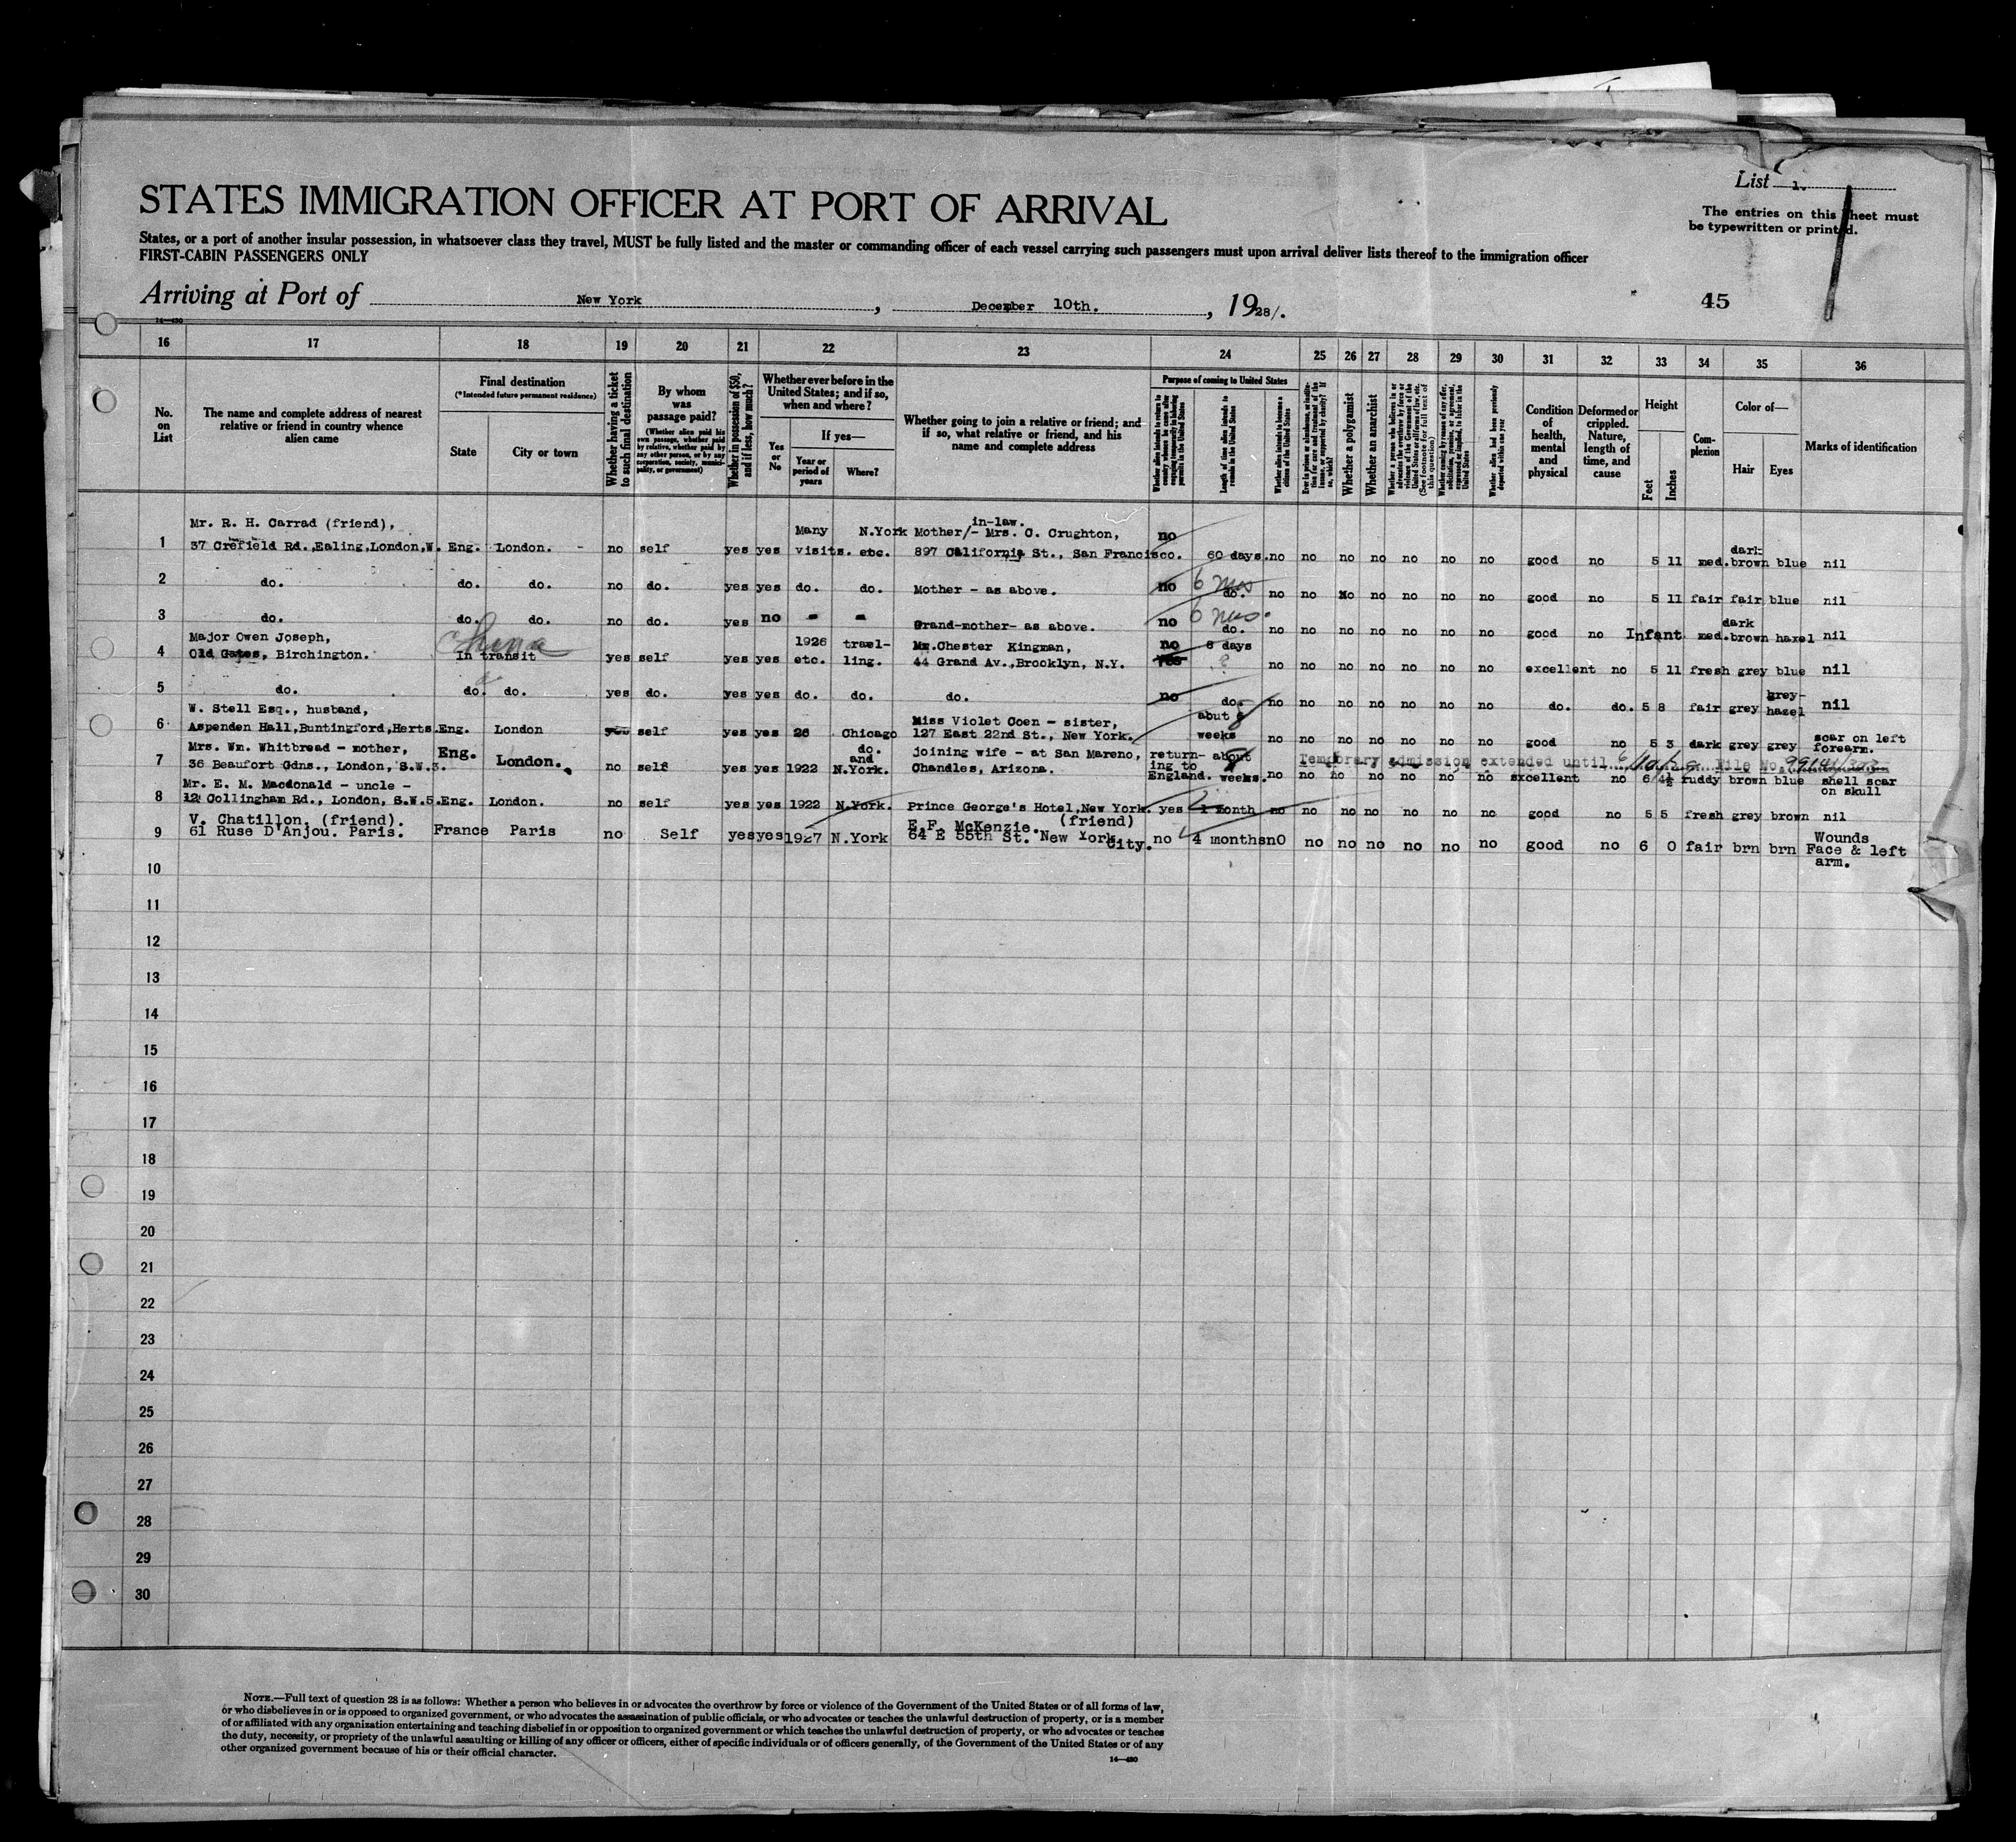 List 1.
STATES IMMIGRATION OFFICER AT PORT OF ARRIVAL
The entries on this sheet must
be typewritten or printed.
States, or a port of another insular possession, in whatsoever class they travel, MUST be fully listed and the master or commanding officer of each vessel carrying such passengers must upon arrival deliver lists thereof to the immigration officer
FIRST-CABIN PASSENGERS ONLY
Arriving at Port of New York, December 10th., 1928/.
45
14—430
16 17 18 19 20 21 22 23 24 25 26 27 28 29 30 31 32 33 34 35 36
No. on List
The name and complete address of nearest relative or friend in country whence alien came
Final destination
(*Intended future permanent residence)
State
City or town
Whether having a ticket to such final destination
By whom was passage paid?
(Whether alien paid his own passage, whether paid by relative, whether paid by any other person, or by any corporation, society, municipality, or government)
Whether in possession of $50, and if less, how much?
Whether ever before in the United States; and if so, when and where?
Yes or No
If yes—
Year or period of years
Where?
Whether going to join a relative or friend; and if so, what relative or friend, and his name and complete address
Purpose of coming to United States
Length of time alien intends to remain in the United States
Whether alien intends to become a citizen of the United States
Whether a polygamist
Whether an anarchist
(See footnote for full text of this question)
Whether alien had been previously deported within one year
Condition of health, mental and physical
Deformed or crippled. Nature, length of time, and cause
Height
Feet
Inches
Complexion
Color of—
Hair
Eyes
Marks of identification
Mr. R. H. Carrad (friend), Many N.York Mother/- in-law. Mrs. C. Crughton, no
1 37 Crefield Rd.,Ealing,London,W. Eng. London. - no self yes yes visits. etc. 897 California St., San Francisco. 60 days. no no no no no no no good no 5 11 med. dark brown blue nil
2 do. do. do. no do. yes yes do. do. Mother - as above. no 6 mos do. no no No no no no no good no 5 11 fair fair blue nil
3 do. do. do. no do. yes no - - Grand-mother- as above. no 6 mos. do. no no no no no no no good no Infant med. dark brown hazel nil
Major Owen Joseph, China 1926 travel- Mr.Chester Kingman, no 8 days
4 Old Gates, Birchington. In transit yes self yes yes etc. ling. 44 Grand Av.,Brooklyn, N.Y. Yes ? no no no no no no no excellent no 5 11 fresh grey blue nil
5 do. do. do. yes do. yes yes do. do. do. no do. no no no no no no no do. do. 5 8 fair grey grey-hazel nil
W. Stell Esq., husband, Miss Violet Coen - sister, about
6 Aspenden Hall,Buntingford,Herts.Eng. London yes self yes yes 26 Chicago 127 East 22nd St., New York. weeks no no no no no no no good no 5 3 dark grey grey scar on left forearm.
Mrs. Wm. Whitbread - mother, Eng. London. do. and joining wife - at San Mareno, return- about Temporary admission extended until File No.
7 36 Beaufort Gdns., London, S.W.3. no self yes yes 1922 N.York. Chandles, Arizona. ing to England. weeks. no no no no no no no excellent no 6 4½ ruddy brown blue shell scar on skull
Mr. E. M. Macdonald - uncle -
8 12 Collingham Rd., London, S.W.5.Eng. London. no self yes yes 1922 N.York. Prince George's Hotel,New York. yes 1 month no no no no no no no good no 5 5 fresh grey brown nil
V. Chatillon. (friend). E.F. McKenzie. (friend)
9 61 Ruse D'Anjou. Paris. France Paris no Self yes yes 1927 N.York 64 E 55th St. New York City. no 4 months nO no no no no no no good no 6 0 fair brn brn Wounds Face & left arm.
10
11
12
13
14
15
16
17
18
19
20
21
22
23
24
25
26
27
28
29
30
NOTE.—Full text of question 28 is as follows: Whether a person who believes in or advocates the overthrow by force or violence of the Government of the United States or of all forms of law,
or who disbelieves in or is opposed to organized government, or who advocates the assassination of public officials, or who advocates or teaches the unlawful destruction of property, or is a member
of or affiliated with any organization entertaining and teaching disbelief in or opposition to organized government or which teaches the unlawful destruction of property, or who advocates or teaches
the duty, necessity, or propriety of the unlawful assaulting or killing of any officer or officers, either of specific individuals or of officers generally, of the Government of the United States or of any
other organized government because of his or their official character.
14—430